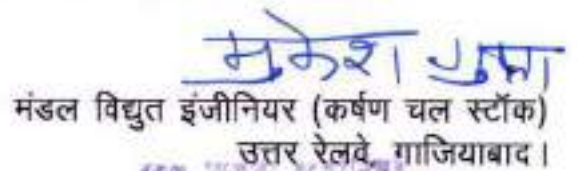 मुकेश गुप्ता
मंडल विद्युत इंजीनियर (कर्षण चल स्टॉक)
उत्तर रेलवे, गाजियाबाद।